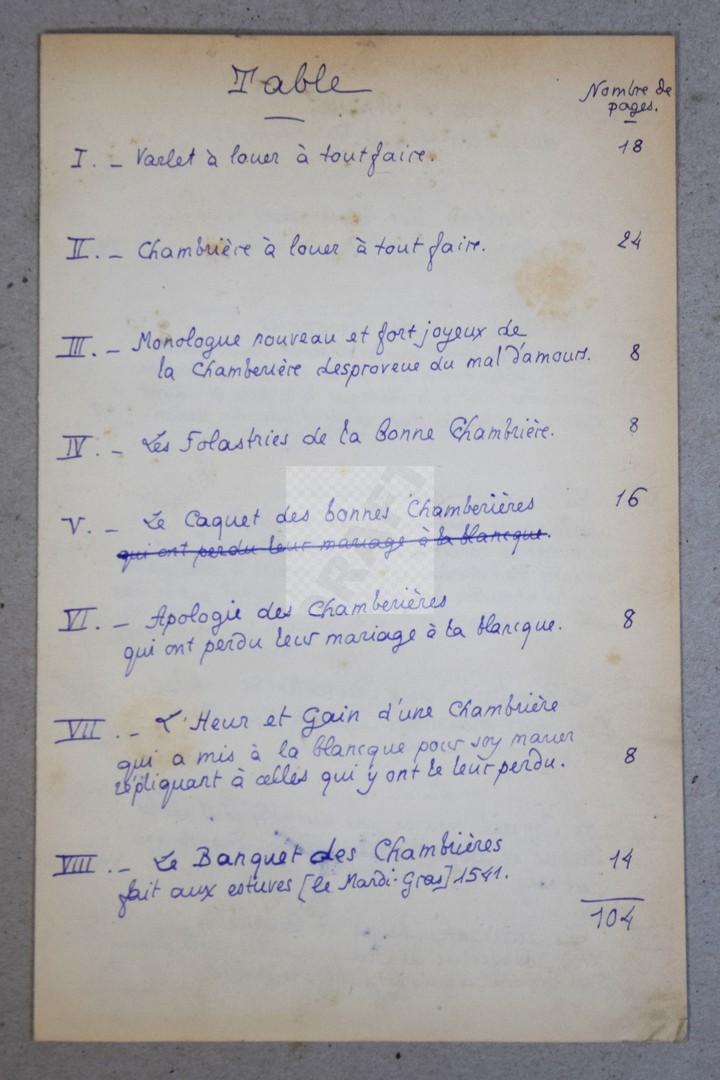 Table
Nombre de
pages.
I. - Varlet à louer à tout faire. 18
II. - Chambrière à louer à tout faire. 24
III. - Monologue nouveau et fort joyeux de
la Chamberière desproveue du mal d'amours. 8
IV. - Les Folastries de la Bonne Chambrière. 8
V. - Le Caquet des bonnes Chamberières 16
qui ont perdu leur mariage à la blancque.
VI. - Apologie des Chamberières
qui ont perdu leur mariage à la blancque. 8
VII. - L'Heur et Gain d'une Chambrière
qui a mis à la blancque pour soy marier
répliquant à celles qui y ont le leur perdu. 8
VIII. - Le Banquet des Chambrières 14
fait aux estuves [le Mardi-Gras] 1541.
104